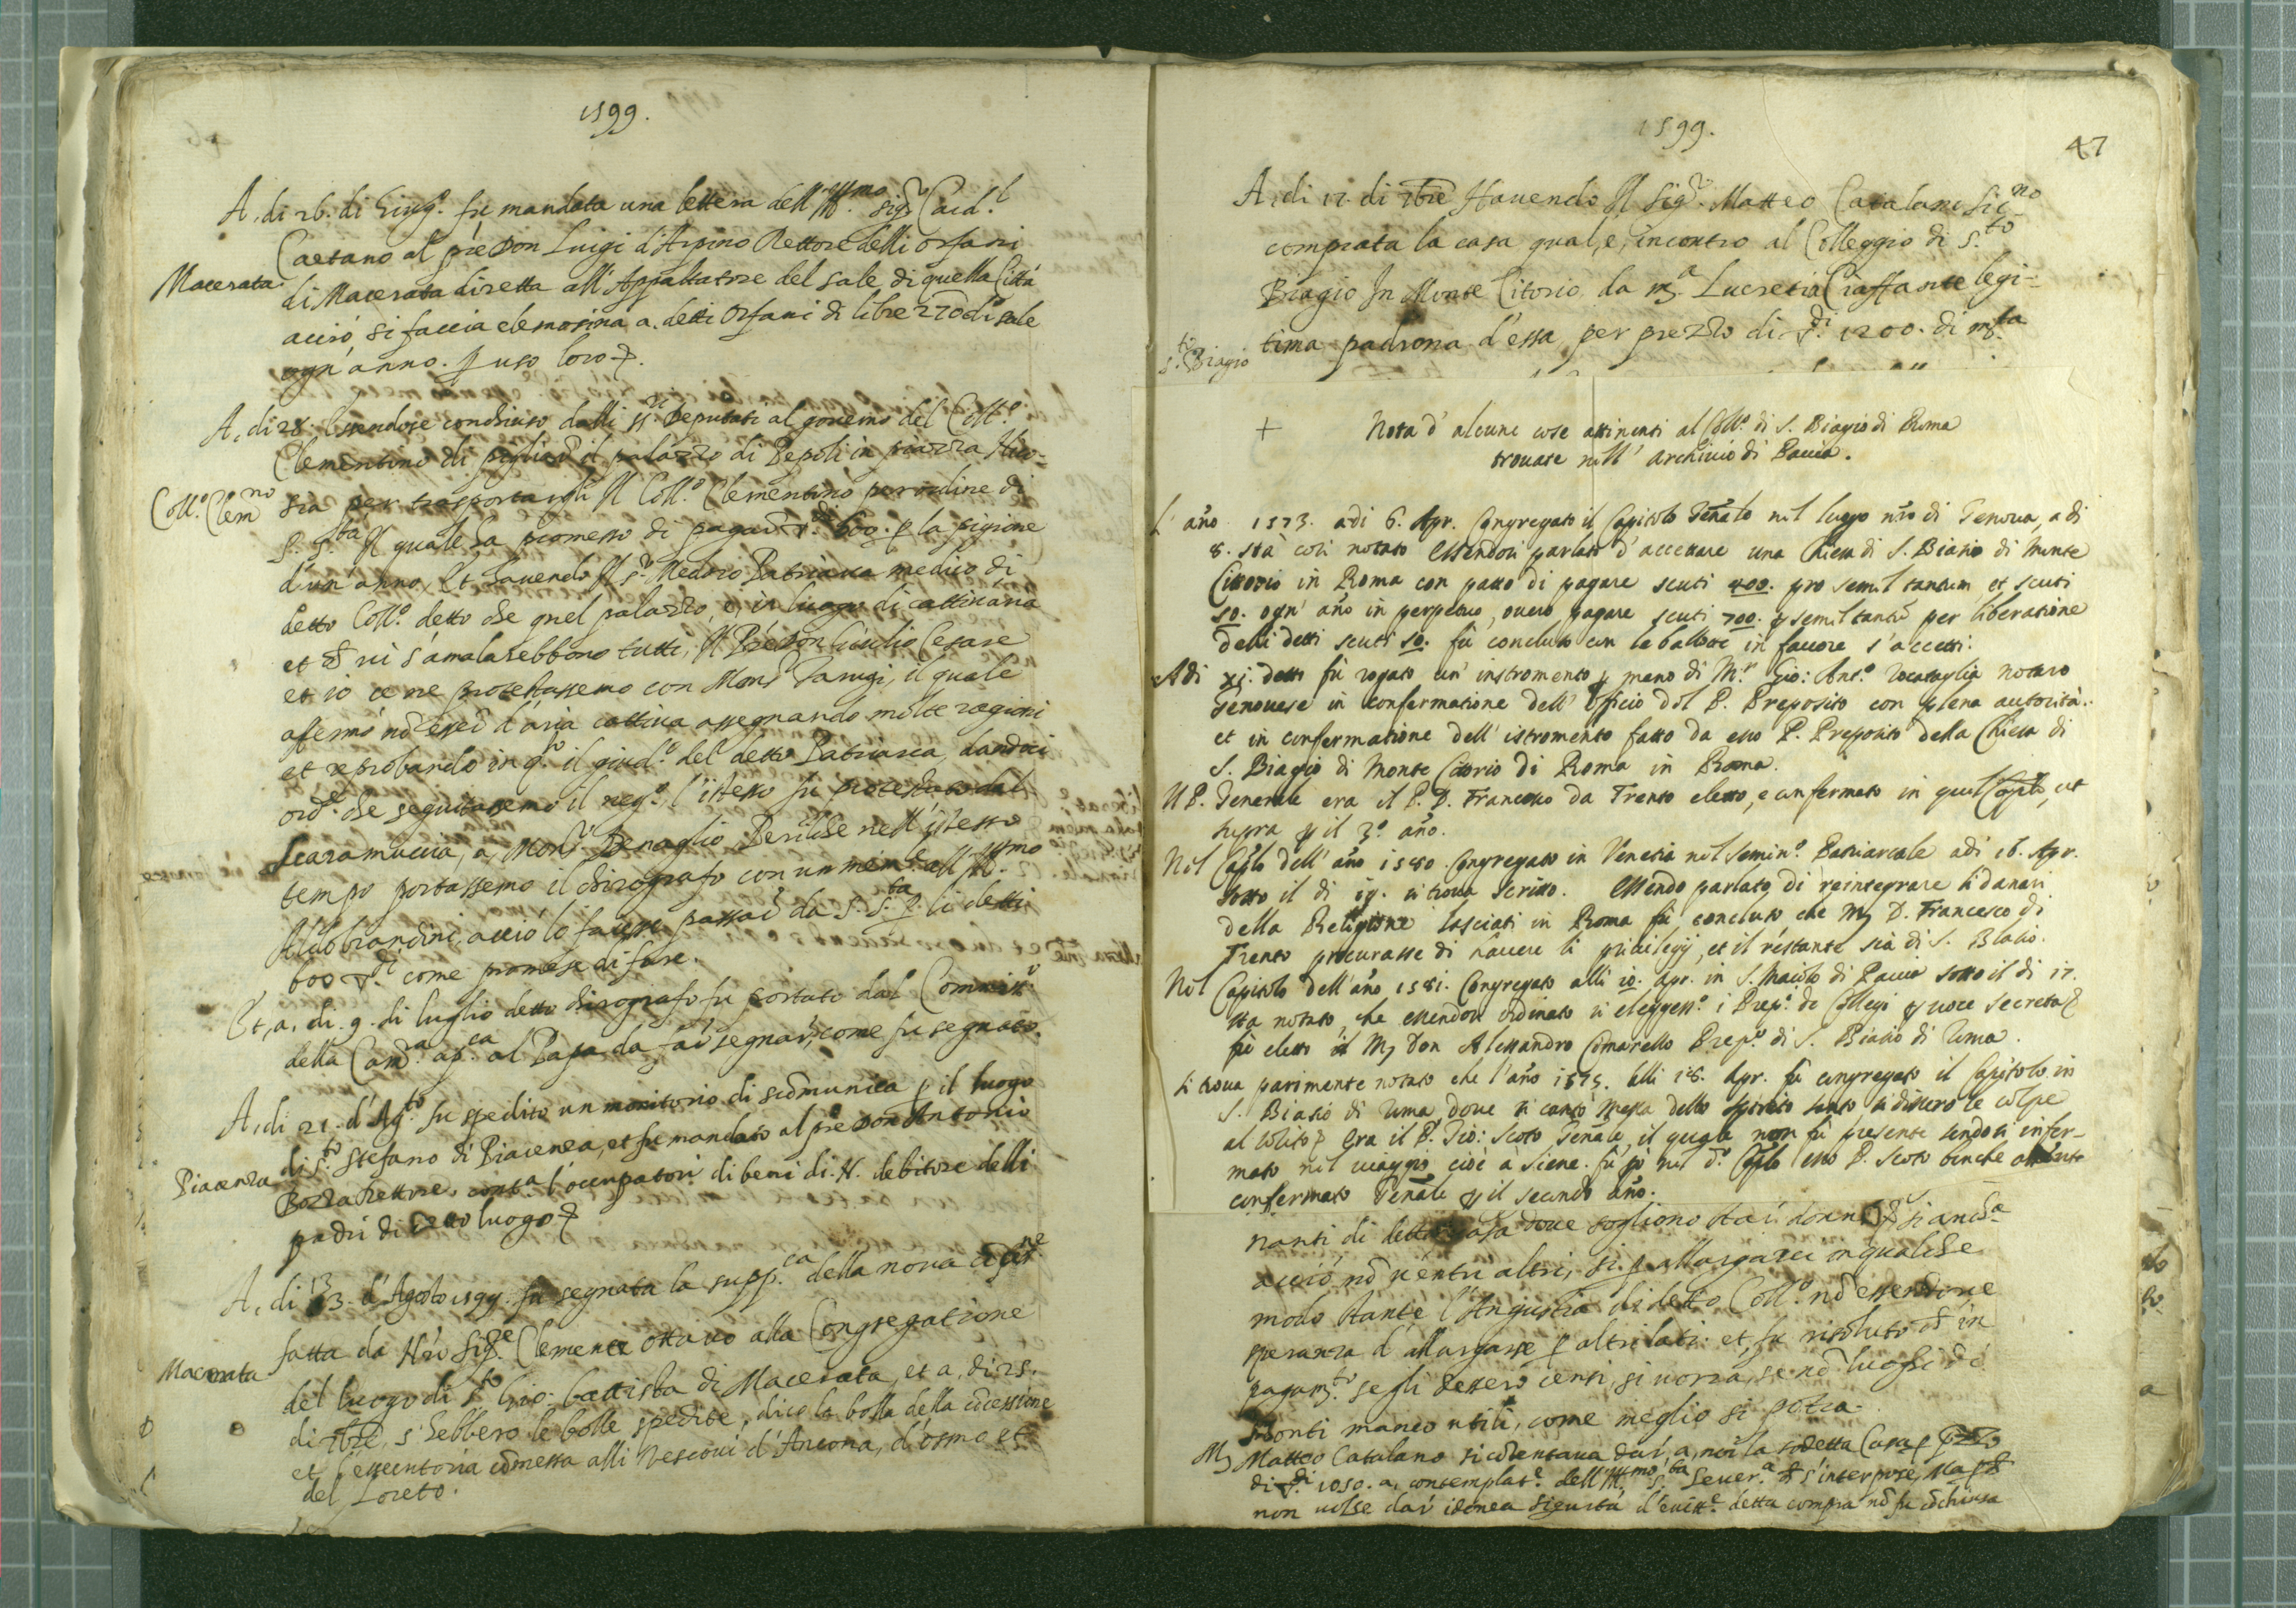 1599.
A, di 26. di Giug.º fu mandata una lettera dell'Ill.mo sig.r Card.l
Caetano al pre Don Luigi d'Arpino Rettore delli orfani
Macerata
di Macerata diretta all'Appaltatore del sale di quella Città
acciò si faccia elemosina a. detti Orfani di libre 270 di sale
ogn'anno. p uso loro
A, di 28. essendosi concluso dalli ss.ri Deputati al governo del Coll.º
Clementino di pigliar il palazzo di Pepoli in piazza
Coll.º Clem.no
per trasportarvi Il Coll.º Clementino per ordine di
S. S.ta Il quale ha promesso di pagar 600. p la pigione
d'un'anno, Et havendo Il s.r Medoro Patriarca medico di
detto Coll.º detto che quel palazzo, è, in luogo di cattiva aria
et vi s'amalarebbono tutti, Il Pre Don Giulio Cesare
et io ce ne protestassemo con Mons.r Tarugi, il quale
afermò nõ esser d'aria cattiva assegnando molte ragioni
et reprobando in q.to il giud.º del detto Patriarca, dandoci
ord.e che seguitassemo il neg.º, l'istesso fu protestato dal
Scaramuccia, a, Mons.r Benaglio Perilche nell'istesso
tempo portassemo il chirografo con un mem.le all'Ill.mo
Aldobrandini, acciò lo facesse passar da S. S.ta p. li detti
600 come promese di fare.
Et, a, di. 9. di luglio detto chirografo fu portato dal Commiss.º
della Cam.a ap.ca al Papa da segnar, come fu segnato.
A, di 21. d'Ag.to fu spedito un monitorio di scõmunica p il luogo
di S.to Stefano di Piacenza, et fu mandato al pre Don Antonio
Piacenza
Bozza Rettore. cont.a l'occupatori di beni di. N. debitore delli
padri di detto luogo
A, di 23. d'Agosto 1599. fu segnata la supp.ca della nova
fatta da N.ro Sig.re Clemente ottavo alla Congregatione
Macerata
del luogo di S.to Gio: Battista di Macerata, et a, di 25.
di 7bre, s'hebbero le bolle spedite, dico la bolla della cõcessione
et l'essecutoria cõmessa alli Vescovi d'Ancona, d'osmo et
del Loreto.
1599.
47
A, di 12. di 7bre Havendo Il Sig.r Matteo Catalani Sic.no
comprata la casa qual, è, incontro al Colleggio di S.to
Biagio In Monte Citorio, da m.a Lucretia Ciaffante legi-
S.to Biagio
tima padrona d'essa, per prezzo di 1200. di m.ta
+ Nota d'alcune cose attinenti al Coll.º di S. Biagio di Roma
trovate nell'Archivio di Pavia.
L'año 1573. adi 6. Apr. Congregato il Capitolo Genãle nel luogo nrõ di Genova, a di
8. sta così notato Essendosi parlato d'accettare una Chiesa di S. Biasio di Monte
Cittorio in Roma con patto di pagare scuti 400. pro semel tantum, et scuti
50. ogn'año in perpetuo, overo pagare scuti 700. p semel tantũ per liberatione
delli detti scuti 50. fù concluso con le ballote in favore s'accetti.
Adi xi. detto fù rogato un'instromento p mano di M.r Gio: Ant.º Rocataglia notaro
genovese in confermatione dell'Officio del P. Preposito con plena autorità.
et in confermatione dell'istromento fatto da esso P. Preposito della Chiesa di
S. Biagio di Monte Citorio di Roma in Roma.
Il P. Generale era il P. D. Francesco da Trento eletto, e confermato in quel Capitolo, ut
supra p il 3.º año.
Nel Caplo dell'año 1580. Congregato in Venetia nel Semin.º Patriarcale adi 16. Apr.
sotto il di 19. si trova scritto. Essendo parlato di reintegrare li danari
della Religione lasciati in Roma fù concluso che M. D. Francesco di
Trento procurasse di havere li privilegij, et il restante sia di S. Blasio.
Nel Capitolo dell'año 1581. Congregato alli 10. Apr. in S. Maiolo di Pavia sotto il di 17.
sta notato, che essendosi ordinato si elegges.º i Prep.ti de Collegi p voce secreta
fù eletto il M. Don Alessandro Cimarello Prep.º di S. Biasio di Roma.
Si trova parimente notato che l'año 1575. alli 18. Apr. fù congregato il Capitolo in
S. Biasio di Roma, dove si cantò Messa dello Spirito Santo si dissero le colpe
al solito Era il P. Gio: Scoto Genãle, il quale non fù presente sendosi infer-
mato nel viaggio cioè à Siene. fù pò nel d.º Caplo esso P. Scoto benche absente
confermato Genãle p il secondo año.
nanti di detta Casa dove sogliono star donne
acciò nõ v'entri altri, si p allargarci in qualche
modo stante l'Angustia di detto Coll.º nõ essendovi
speranza d'allargarse p altri lati. et, fu risoluto ch in
pagam.to segli dessero censi, si vorrà, se nõ luoghi de
Monti manco utili, come meglio si potra.
M. Matteo Catalano si cõtentava dar, a, noi la sodetta Casa p
di 1050. a, contemplat.e dell'Ill.mo S.ta Sever.a s'interpose, Ma
non volse dar idonea sigurtà d'evitt.e detta compra nõ fu cõchiusa